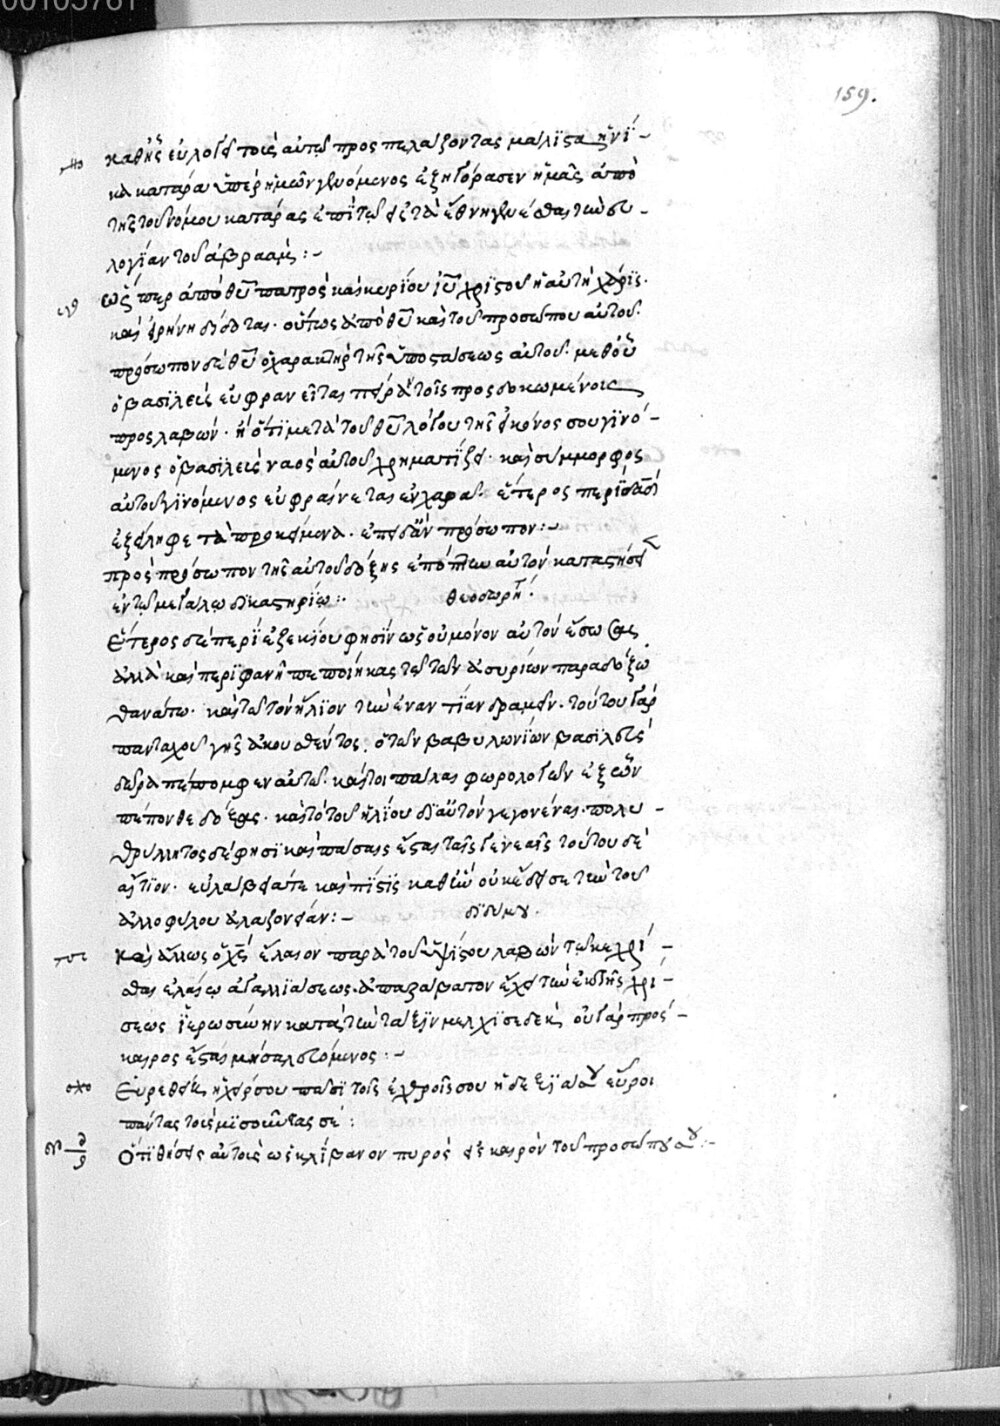 00103761
159.
καθῆς εὐλογεῖ τοὺς αὐτῷ προσπελάζοντας μάλιστα ἡνί-
κα κατάρα ὑπὲρ ἡμῶν γενόμενος ἐξηγόρασεν ἡμᾶς ἀπὸ
τῆς τοῦ νόμου κατάρας ἐπὶ τῷ εἰς τὰ ἔθνη γενέσθαι τὴν εὐ-
λογίαν τοῦ ἀβραάμ :-
ὥσπερ ἀπὸ θυ πατρὸς καὶ κυρίου ιυ χριστοῦ ἡ αὐτὴ χάρις
καὶ εἰρήνη δίδοται· οὕτως ἀπὸ θυ καὶ τοῦ προσώπου αὐτοῦ·
πρόσωπον δὲ θυ ὁ χαρακτὴρ τῆς ὑποστάσεως αὐτοῦ· μεθ' οὗ
ὁ βασιλεὺς εὐφρανεῖται παρὰ τοῖς προσδοκωμένοις
προσλαβών· ἢ ὅτι μετὰ τοῦ θυ λόγου τῆς εἰκόνος σου γινό-
μενος ὁ βασιλεὺς ναὸς αὐτοῦ χρηματίζει· καὶ σύμμορφος
αὐτοῦ γινόμενος εὐφραίνεται ἐν χαρᾷ· ἕτερος
ἐξείληφε τὰ προκείμενα· πρόσωπον :-
πρὸς πρόσωπον τῆς αὐτοῦ δόξης ἐπόπτην αὐτὸν καταστήσει
ἐν τῷ μεγάλῳ δικαστηρίῳ :· θεοδωρήτ·
ἕτερος δὲ περὶ ἐζεκίου φησὶν ὡς οὐ μόνον αὐτὸν ἔσωσας
ἀλλὰ καὶ περιφανῆ πεποίηκας τῷ τῶν ἀσυρίων παραδόξῳ
θανάτῳ· καὶ τῷ τὸν ἥλιον τὴν ἐναντίαν δραμεῖν· τούτου γὰρ
πανταχοῦ γῆς ἀκουσθέντος· ὁ τῶν βαβυλωνίων βασιλεὺς
δῶρα πέπομφεν αὐτῷ· καίτοι πάλαι φορολογῶν ἐξ ὧν
πέπονθε δόξας· καὶ τὸ τοῦ ἡλίου δι' αὐτὸν γεγονέναι· πολυ-
θρύλλητος δέ φησι καὶ πάσαις ἔσται ταῖς γενεαῖς τούτου δὲ
αἴτιον· εὐλάβεια τὲ καὶ πίστις καθ' ἣν οὐκ ἔδεισε τὴν τοῦ
ἀλλοφύλου ἀλαζονείαν :- διδύμου·
Καὶ ἄλλως ὁ χς ἔλαιον παρὰ τοῦ ὑψίστου λαβὼν τῷ κεχρί-
σθαι ἐλαίῳ ἀγαλλιάσεως· ἀπαράβατον ἔχει τὴν ἐκ τῆς χρί-
σεως ἱερωσύνην κατὰ τὴν τάξιν μελχισεδέκ· οὐ γὰρ πρόσ-
καιρος ἔσται μὴ σαλευόμενος :-
Εὑρεθείη ἡ χείρ σου πᾶσι τοῖς ἐχθροῖς σου ἡ δεξιά σου εὕροι
πάντας τοὺς μισοῦντας σέ :
Ὅτι θήσεις αὐτοὺς ὡς κλίβανον πυρὸς εἰς καιρὸν τοῦ προσώπου σου :-